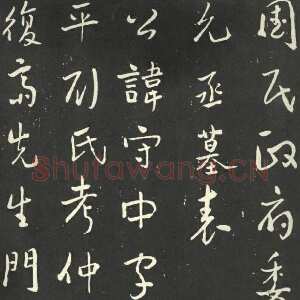 國民政府委
允丞墓表
公諱守中字
平刘氏考仲
復齋先生門
Shufawang.CN